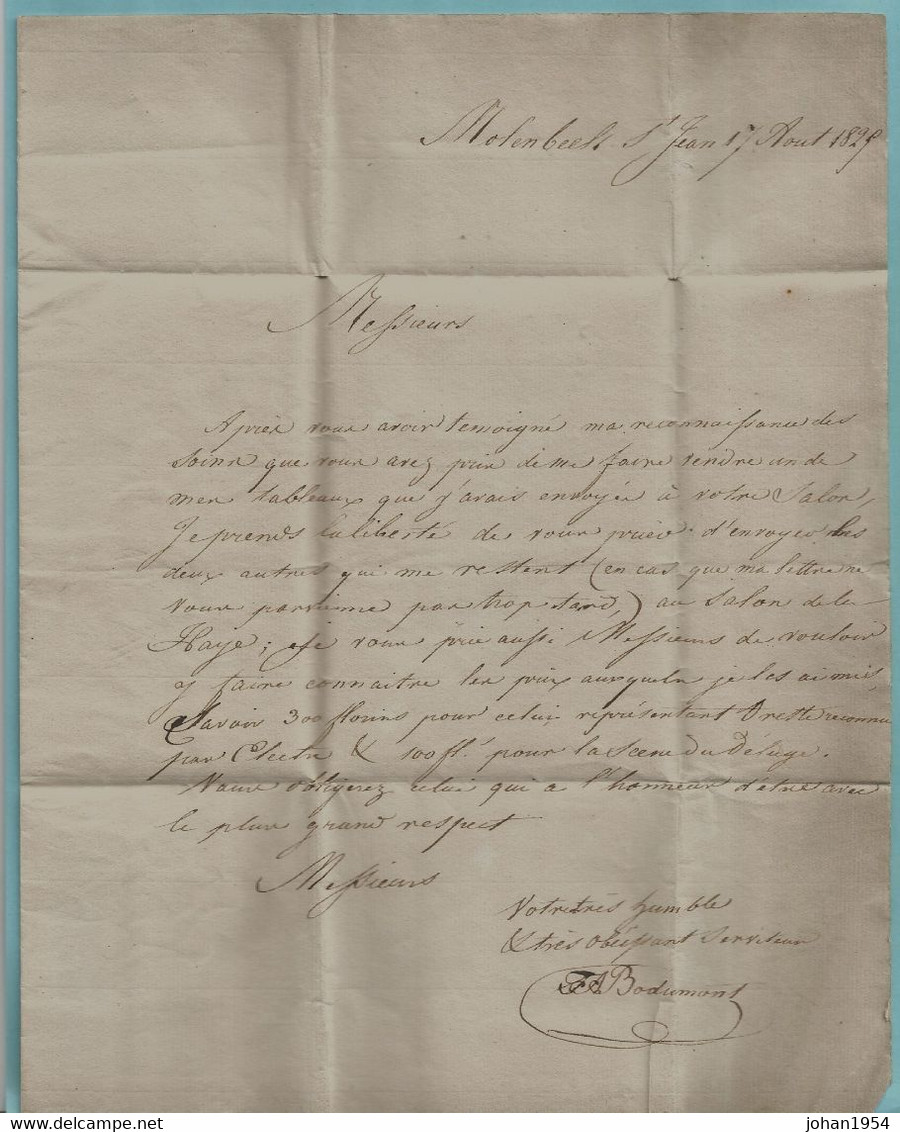 Molenbeek St Jean 17 Aout 1829
Messieurs
Après vous avoir temoigné ma reconnaissance des
soins que vous avez pris de me faire vendre un de
mes tableaux que j'avais envoyés à votre Salon,
Je prends la liberté de vous prier d'envoyer les
deux autres qui me restent (en cas que ma lettre ne
vous parvienne pas trop tard,) au Salon de la
Haye; Je vous prie aussi Messieurs de vouloir
y faire connaitre les prix auxquels je les ai mis
Savoir 300 florins pour celui représentant Oreste reconnu
par Electre & 100 fls pour la Scene du Déluge.
Vous obligerez celui qui a l'honneur d'être avec
le plus grand respect
Messieurs
Votre très humble
& très obéissant Serviteur
Bodumont
delcampe.net
johan1954